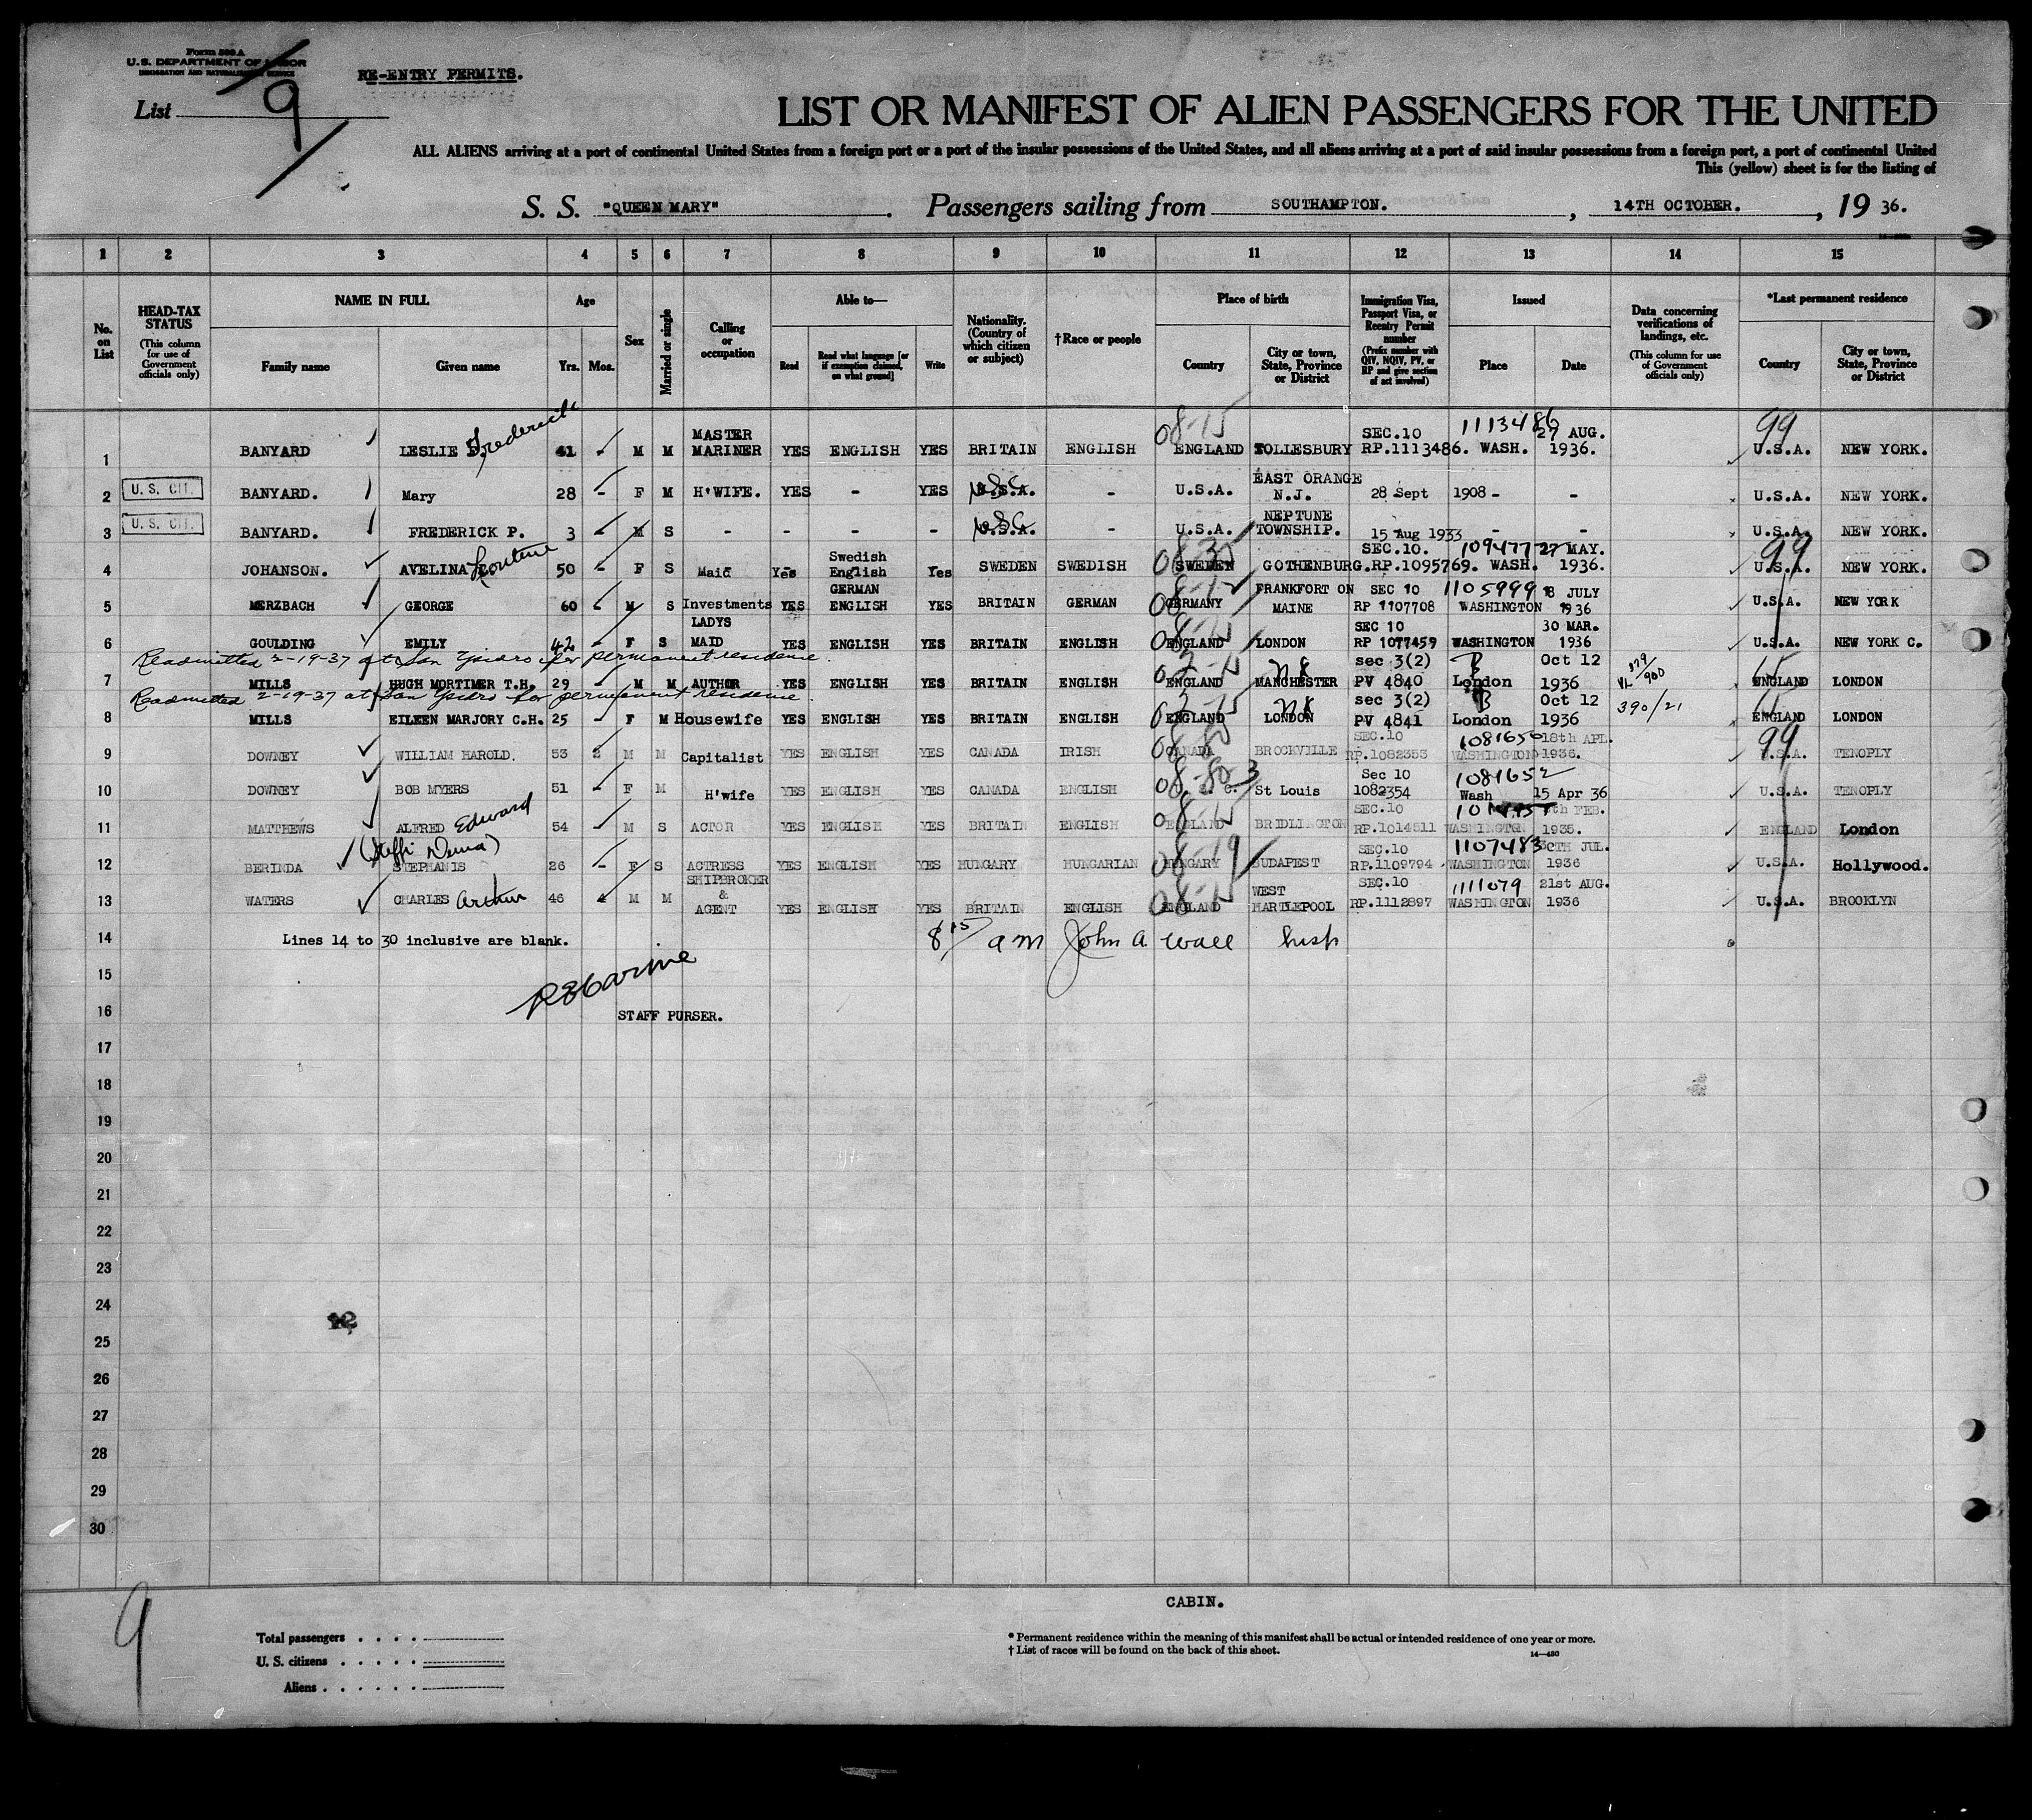 Form 500 A
U.S. DEPARTMENT OF LABOR
IMMIGRATION AND NATURALIZATION SERVICE
RE-ENTRY PERMITS.
List 9
LIST OR MANIFEST OF ALIEN PASSENGERS FOR THE UNITED
ALL ALIENS arriving at a port of continental United States from a foreign port or a port of the insular possessions of the United States, and all aliens arriving at a port of said insular possessions from a foreign port, a port of continental United
This (yellow) sheet is for the listing of
S. S. "QUEEN MARY". Passengers sailing from SOUTHAMPTON., 14TH OCTOBER., 19 36.
1 2 3 4 5 6 7 8 9 10 11 12 13 14 15
No. on List
HEAD-TAX STATUS (This column for use of Government officials only)
NAME IN FULL Family name Given name
Age Yrs. Mos.
Sex
Married or single
Calling or occupation
Able to— Read Read what language [or if exemption claimed, on what ground] Write
Nationality. (Country of which citizen or subject)
†Race or people
Place of birth Country City or town, State, Province or District
Immigration Visa, Passport Visa, or Reentry Permit number (Prefix number with QIV, NQIV, PV, or RP and give section of act involved)
Issued Place Date
Data concerning verifications of landings, etc. (This column for use of Government officials only)
*Last permanent residence Country City or town, State, Province or District
1 BANYARD LESLIE F. Frederick 41 M M MASTER MARINER YES ENGLISH YES BRITAIN ENGLISH 08-15 ENGLAND TOLLESBURY SEC.10 RP.1113486. 1113486 WASH. 27 AUG. 1936. 99 U.S.A. NEW YORK.
2 U. S. CIT. BANYARD. Mary 28 - F M H'WIFE. YES - YES U.S.A. - U.S.A. EAST ORANGE N.J. 28 Sept 1908 - - U.S.A. NEW YORK.
3 U. S. CIT. BANYARD. FREDERICK P. 3 M S - - - - U.S.A. - U.S.A. NEPTUNE TOWNSHIP. 15 Aug 1933 - - U.S.A. NEW YORK.
4 JOHANSON. AVELINA 50 - F S Maid Yes Swedish English Yes SWEDEN SWEDISH SWEDEN GOTHENBURG. SEC.10. RP.1095769. 109477 WASH. 27 MAY. 1936. 99 U.S.A. NEW YORK.
5 MERZBACH GEORGE 60 - M S Investments YES GERMAN ENGLISH YES BRITAIN GERMAN GERMANY FRANKFORT ON MAINE SEC 10 RP 1107708 1105999 WASHINGTON 18 JULY 1936 U.S.A. NEW YORK
6 GOULDING EMILY 42 - F S LADYS MAID YES ENGLISH YES BRITAIN ENGLISH ENGLAND LONDON SEC 10 RP 1077459 WASHINGTON 30 MAR. 1936 U.S.A. NEW YORK C.
Readmitted 2-19-37 at San Ysidro for permanent residence.
7 MILLS HUGH MORTIMER T.H. 29 - M M AUTHOR YES ENGLISH YES BRITAIN ENGLISH ENGLAND MANCHESTER sec 3(2) PV 4840 London Oct 12 1936 ENGLAND LONDON
Readmitted 2-19-37 at San Ysidro for permanent residence.
8 MILLS EILEEN MARJORY C.H. 25 - F M Housewife YES ENGLISH YES BRITAIN ENGLISH ENGLAND LONDON sec 3(2) PV 4841 London Oct 12 1936 390/21 ENGLAND LONDON
9 DOWNEY WILLIAM HAROLD. 53 2 M M Capitalist YES ENGLISH YES CANADA IRISH CANADA BROCKVILLE SEC.10 RP.1082353 1081650 WASHINGTON 18th APL. 1936. 99 U.S.A. TENOPLY
10 DOWNEY BOB MYERS 51 - F M H'wife YES ENGLISH YES CANADA ENGLISH St Louis Sec 10 1082354 1081652 Wash 15 Apr 36 U.S.A. TENOPLY
11 MATTHEWS ALFRED Edward 54 M S ACTOR YES ENGLISH YES BRITAIN ENGLISH ENGLAND BRIDLINGTON SEC.10 RP.1014511 WASHINGTON FEB. 1935. ENGLAND London
12 BERINDA STEPHANIS (Steffi Duna) 26 - F S ACTRESS YES ENGLISH YES HUNGARY HUNGARIAN 08-19 HUNGARY BUDAPEST SEC.10 RP.1109794 1107483 WASHINGTON 30TH JUL. 1936 U.S.A. Hollywood.
13 WATERS CHARLES Arthur 46 M M SHIPBROKER & AGENT YES ENGLISH YES BRITAIN ENGLISH ENGLAND WEST HARTLEPOOL SEC.10 RP.1112897 1111079 WASHINGTON 21st AUG. 1936 U.S.A. BROOKLYN
14 Lines 14 to 30 inclusive are blank. 8 15 am John A Wall Insp
15
16 STAFF PURSER.
17
18
19
20
21
22
23
24
25
26
27
28
29
30
9
CABIN.
Total passengers
U. S. citizens
Aliens
* Permanent residence within the meaning of this manifest shall be actual or intended residence of one year or more.
† List of races will be found on the back of this sheet.
14—430